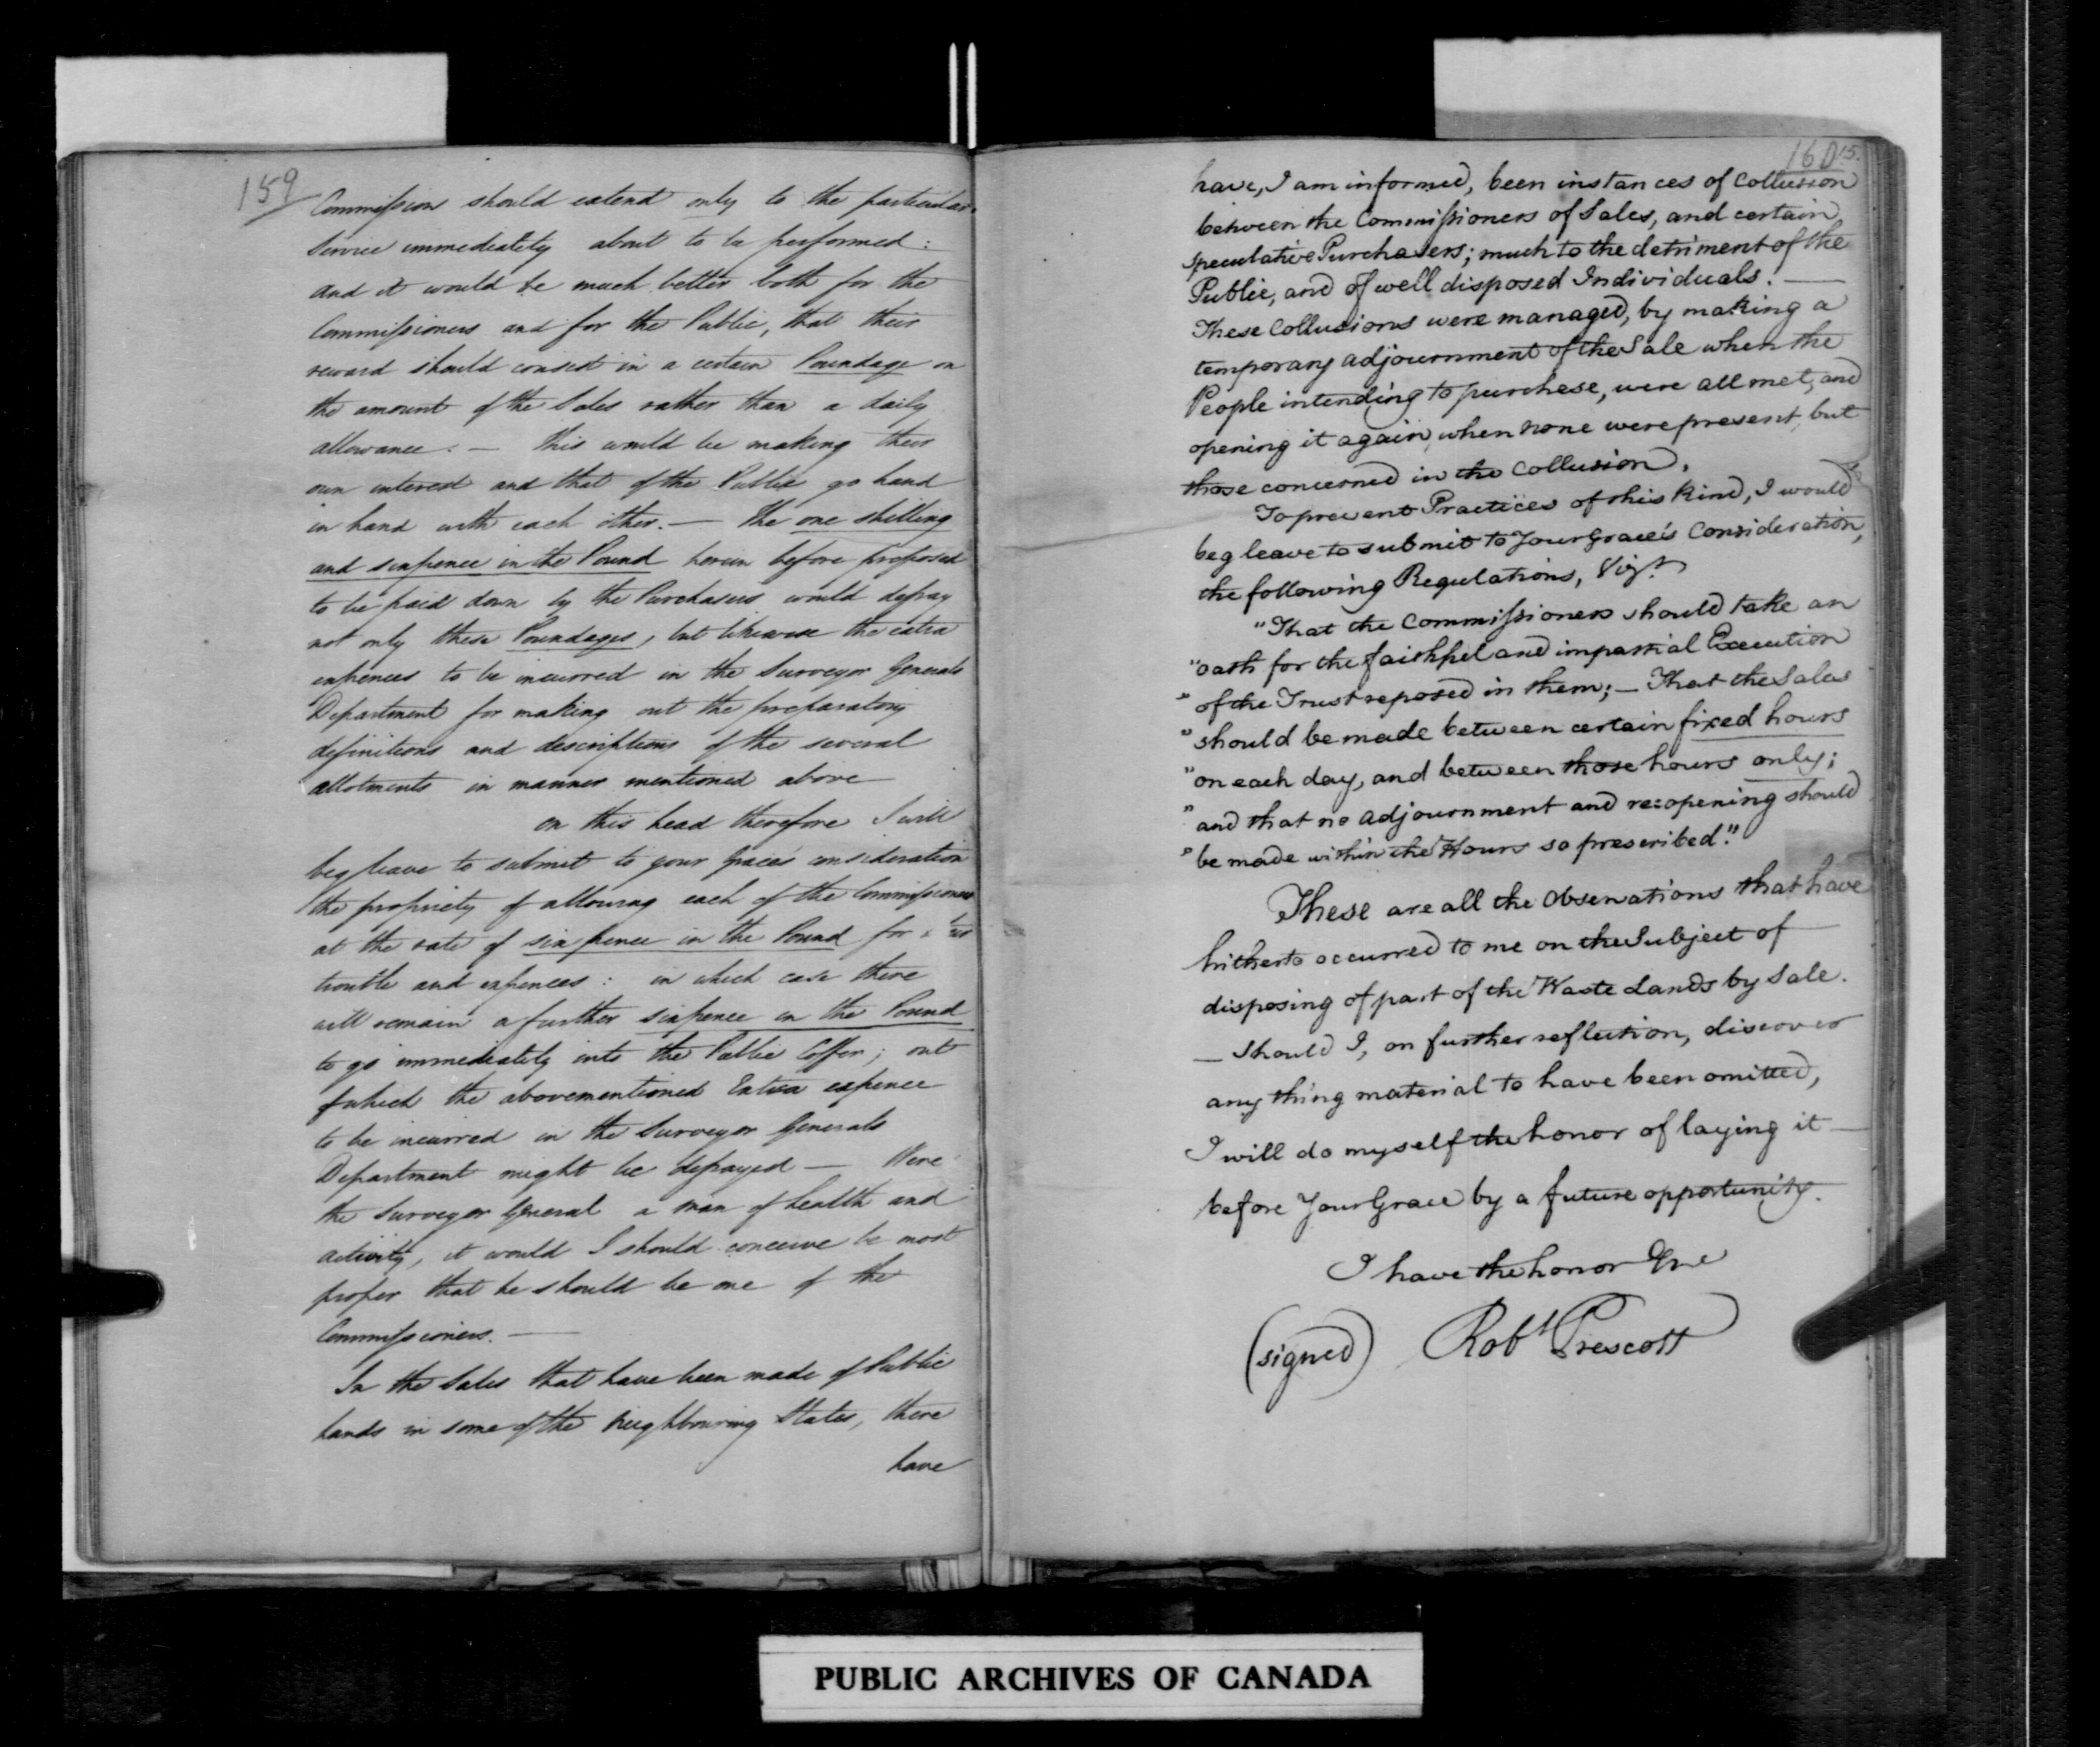 159
Commission should extend only to the particular
Service immediately about to be performed:
and it would be much better both for the
Commissioners and for the Public, that their
reward should consist in a certain Poundage on
the amount of the Sales rather than a daily
allowance. — This would be making their
own interest and that of the Public go hand
in hand with each other. — The one shilling
and sixpence in the Pound herein before proposed
to be paid down by the Purchasers would defray
not only these Poundages, but likewise the extra
expences to be incurred in the Surveyor Generals
Department for making out the preparatory
definitions and descriptions of the several
allotments in manner mentioned above
On this head therefore I will
beg leave to submit to your Graces consideration
the propriety of allowing each of the Commissioners
at the rate of six pence in the Pound for
trouble and expences: in which case there
will remain a further sixpence in the Pound
to go immediately into the Public Coffer; out
of which the abovementioned Extra expence
to be incurred in the Surveyor Generals
Department might be defrayed — Were
the Surveyor General a man of health and
activity, it would I should conceive be most
proper that he should be one of the
Commissioners. —
In the Sales that have been made of Public
Lands in some of the Neighbouring States, there
have
160 15.
have, I am informed, been instances of Collusion
between the Commissioners of Sales, and certain
speculative Purchasers; much to the detriment of the
Public, and of well disposed Individuals. —
These Collusions were managed, by making a
temporary adjournment of the Sale when the
People intending to purchese, were all met, and
opening it again, when none were present, but
those concerned in the Collusion.
To prevent Practices of this kind, I would
beg leave to submit to Your Grace's Consideration,
the following Regulations, Vizt
"That the Commissioners should take an
"oath for the faithful and impartial Execution
"of the Trust reposed in them; — That the Sales
"should be made between certain fixed hours
"on each day, and between those hours only;
"and that no adjournment and re=opening should
"be made within the Hours so prescribed."
These are all the Observations that have
hitherto occurred to me on the Subject of
disposing of part of the Waste Lands by Sale.
— Should I, on further reflection, discover
any thing material to have been omitted,
I will do myself the honor of laying it —
before Your Grace by a future opportunity.
I have the honor &c
(signed) Robt Prescott
PUBLIC ARCHIVES OF CANADA